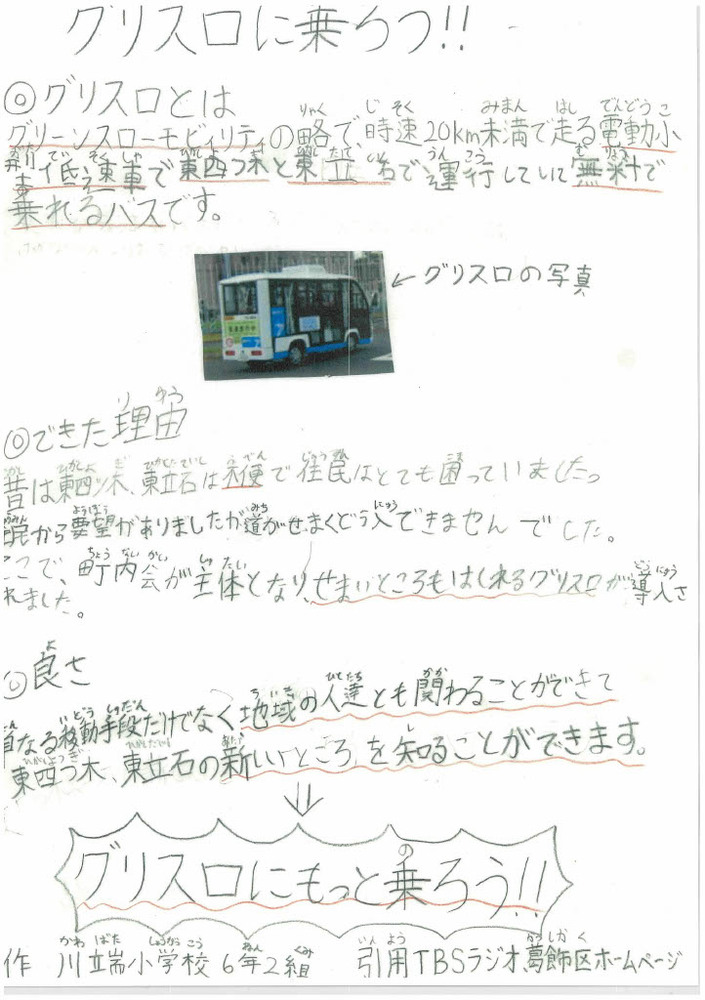 グリスロに乗ろう!!
◎グリスロとは
グリーンスローモビィリティの略で、時速20km未満で走る電動小
型低速車で東四つ木と東立石で運行していて無料で
乗れるバスです。
←グリスロの写真
◎できた理由
昔は東四ツ木、東立石は不便で住民はとても困っていました。
民から要望がありましたが道がせまくどう入できませんでした。
ここで、町内会が主体となり、せまいところもはしれるグリスロが導入さ
れました。
◎良さ
なる移動手段だけでなく地域の人達とも関わることができて
東四つ木、東立石の新しいところを知ることができます。
グリスロにもっと乗ろう!!
作 川端小学校 6年2組 引用TBSラジオ、葛飾区ホームページ